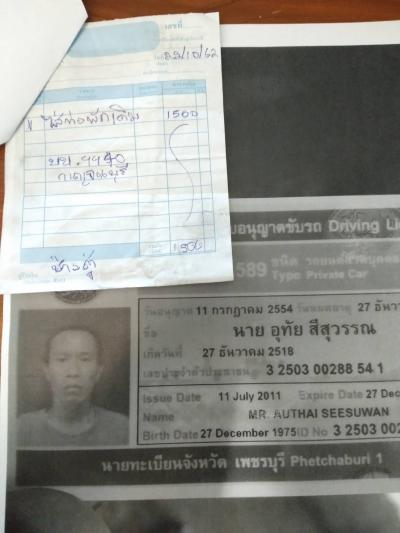 เลขที่
22/10/62
ใส่ท่อพักเดิม 1500
บบ.9950
กาญจนบุรี
1500
ใบอนุญาตขับรถ Driving Li
589 ชนิด รถยนต์ส่วนบุคคล
Type Private Car
วันอนุญาต 11 กรกฎาคม 2554 วันหมดอายุ 27 ธันว
ชื่อ นาย อุทัย สีสุวรรณ
เกิดวันที่ 27 ธันวาคม 2518
เลขประจำตัวประชาชน 3 2503 00288 54 1
Issue Date 11 July 2011 Expire Date 27 Dec
Name MR. AUTHAI SEESUWAN
Birth Date 27 December 1975 ID No 3 2503 002
นายทะเบียนจังหวัด เพชรบุรี Phetchaburi 1